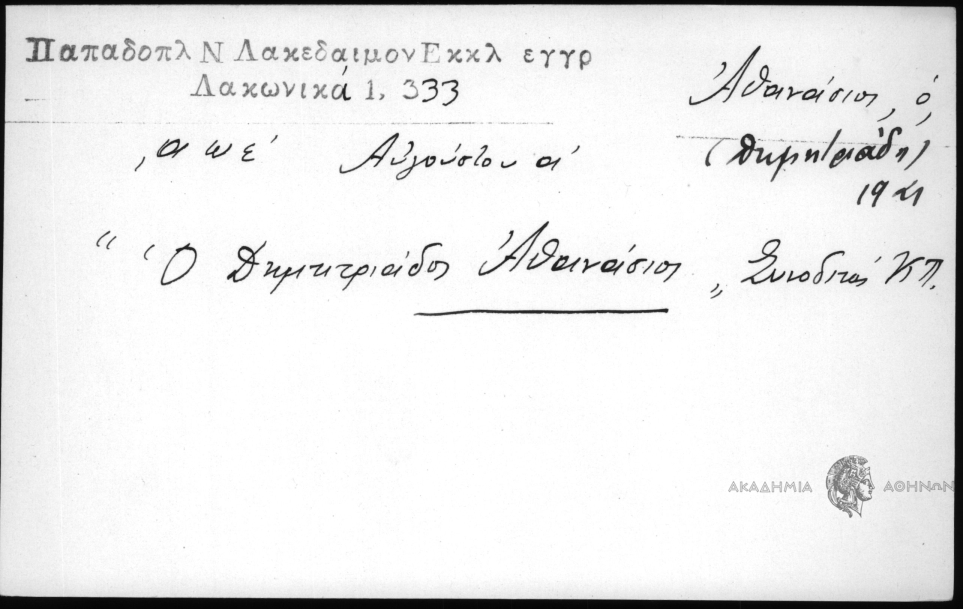 Παπαδοπλ Ν Λακεδαιμον Εκκλ εγγρ
Λακωνικά 1, 333
Ἀθανάσιος, ὁ
(Δημητριάδη)
͵αωέ Αὐγούστου α΄
19
" Ὁ Δημητριάδος Ἀθανάσιος „ Συνοδικός ΚΠ.
ΑΚΑΔΗΜΙΑ ΑΘΗΝΩΝ